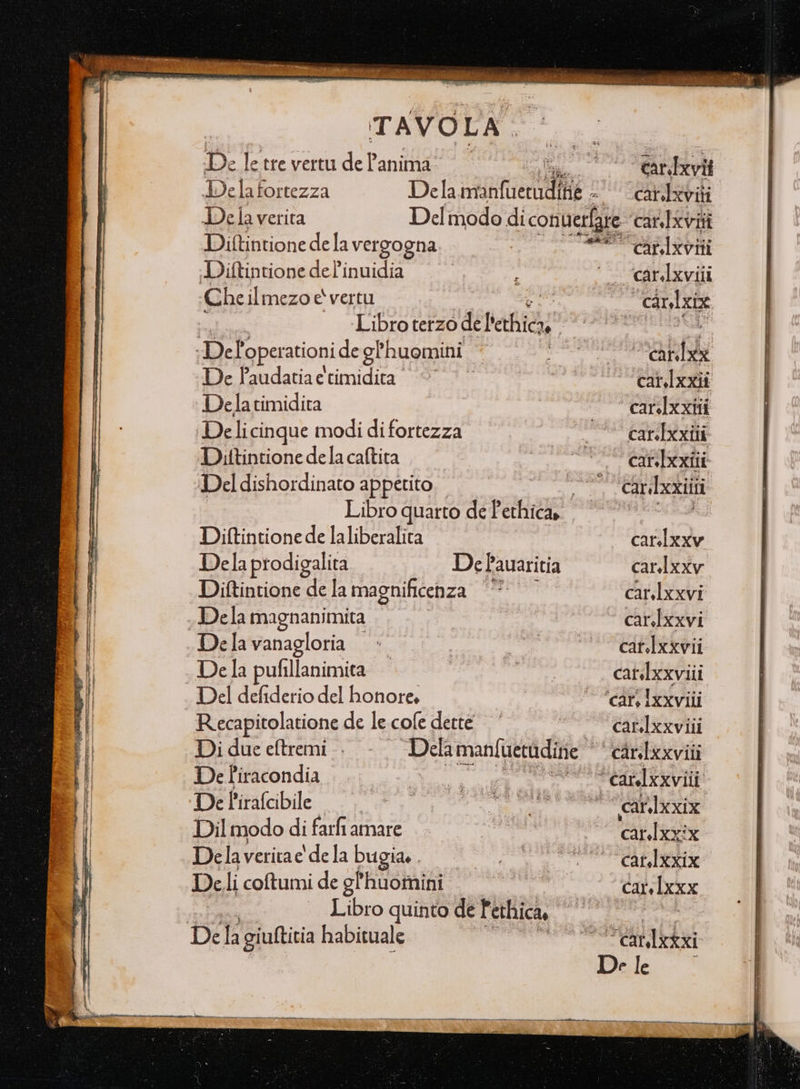 TAVOLA.
De le tre vertu de l'anima car.lxvii
De la fortezza De la manſuetudine car.lxviii
De la verita Del modo di conuerſare car.lxviii
Diſtintione de la vergogna car.lxviii
Diſtintione de l'inuidia car.lxviii
Che il mezo e' vertu car.lxix
Libro terzo de l'ethica,
De l'operationi de gl'huomini car.lxx
De l'audatia e' timidita car.lxxii
De la timidita car.lxxiii
De li cinque modi di fortezza car.lxxiii
Diſtintione de la caſtita car.lxxiii
Del dishordinato appetito car.lxxiiii
Libro quarto de l'ethica,
Diſtintione de la liberalita car.lxxv
De la prodigalita De l'auaritia car.lxxv
Diſtintione de la magnificenza car.lxxvi
De la magnanimita car.lxxvi
De la vanagloria car.lxxvii
De la puſillanimita car.lxxviii
Del deſiderio del honore, car.lxxviii
Recapitolatione de le coſe dette car.lxxviii
Di due eſtremi. De la manſuetudine car.lxxviii
De l'iracondia car.lxxviii
De l'iraſcibile car.lxxix
Dil modo di farſi amare car.lxxix
De la verita e' de la bugia. car.lxxix
De li coſtumi de gl'huomini car.lxxx
Libro quinto de l'ethica,
De la giuſtitia habituale car.lxxxi
De le